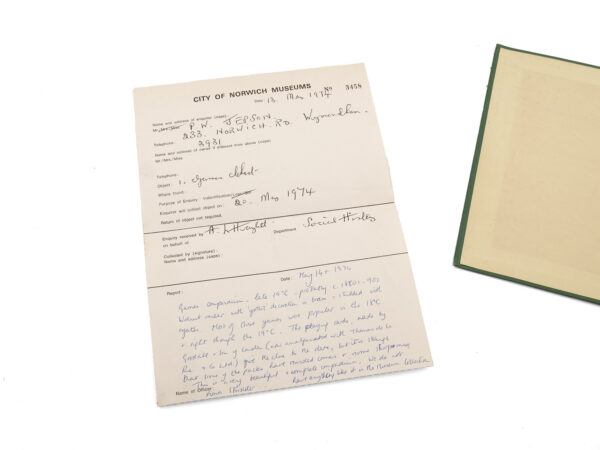 CITY OF NORWICH MUSEUMS
Date 13. May 1974 No 3458
Name and address of enquirer (caps)
Mr/Mrs/Miss P. W. JEPSON
233. NORWICH. RD. Wymondham.
Telephone 2931
Name and address of owner if different from above (caps)
Mr/Mrs/Miss
Telephone:
Object: 1. Games chest.
Where found:
Purpose of Enquiry: Identification/
Enquirer will collect object on 20. May 1974
Return of object not required.
Enquiry received by Department Social History
on behalf of
Collected by (signature)
Name and address (caps)
Report: Date: May 14th 1974
Games compendium. Late 19th C - probably c. 1880's-90s
Walnut veneer with gothic decoration in brass - studded with
agates. Most of these games was popular in the 18th C
+ right through the 19th C. The playing cards, made by
Goodall + Son of London (now amalgamated with Thomas de la
Rue + Co Ltd) give the clue to the date, but it is strange
that some of the packs have rounded corners + some
This is a very beautiful + complete compendium. We do not
have anything like it in the Museum Collection
Name of Officer: